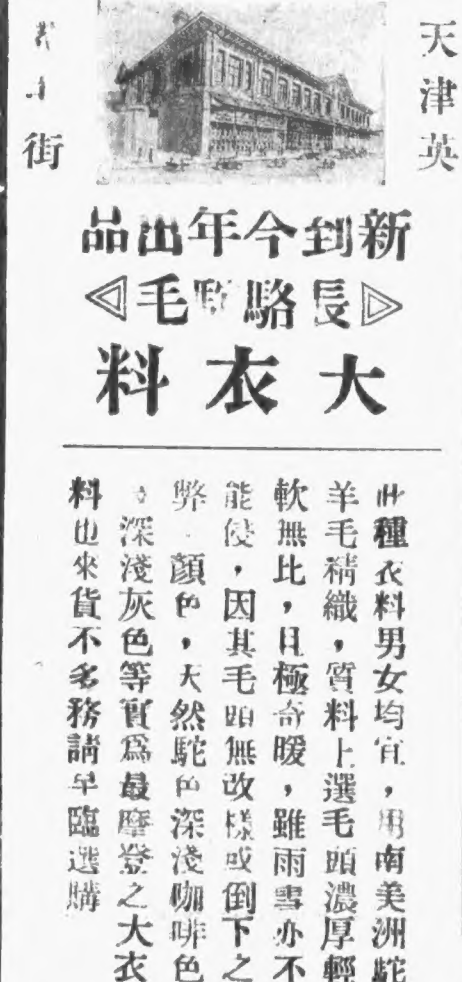 天津英
街
新到今年出品
▷長駱駝毛◁
大衣料
此種衣料男女均宜，用南美洲駝
羊毛精織，質料上選毛頭濃厚輕
軟無比，且極奇暖，雖雨雪亦不
能侵，因其毛頭無改樣或倒下之
弊．顏色，天然駝色深淺咖啡色
深淺灰色等實爲最摩登之大衣
料也來貨不多務請早臨選購